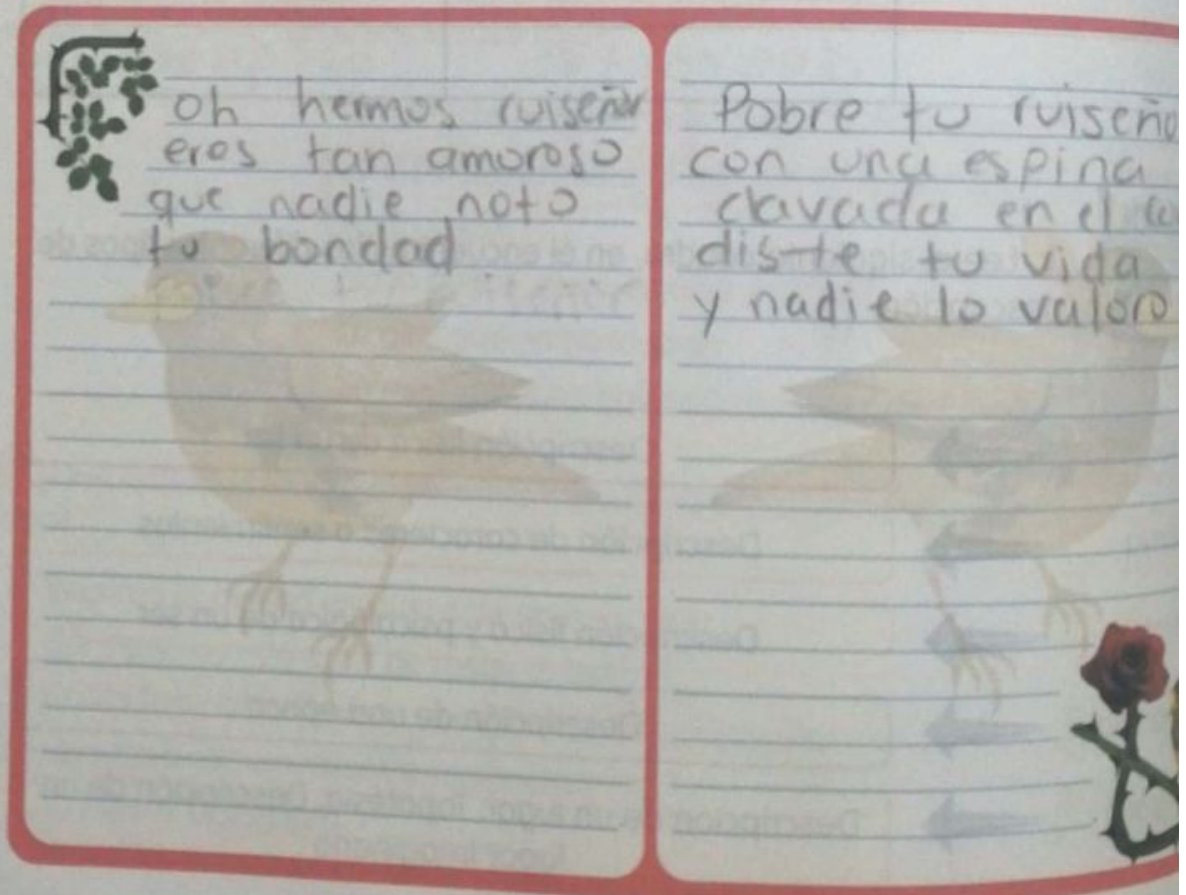 oh hermos ruiseñor
eres tan amoroso
que nadie noto
tu bondad
Pobre tu ruiseño
con una espina
clavada en el
diste tu vida
y nadie lo valoro